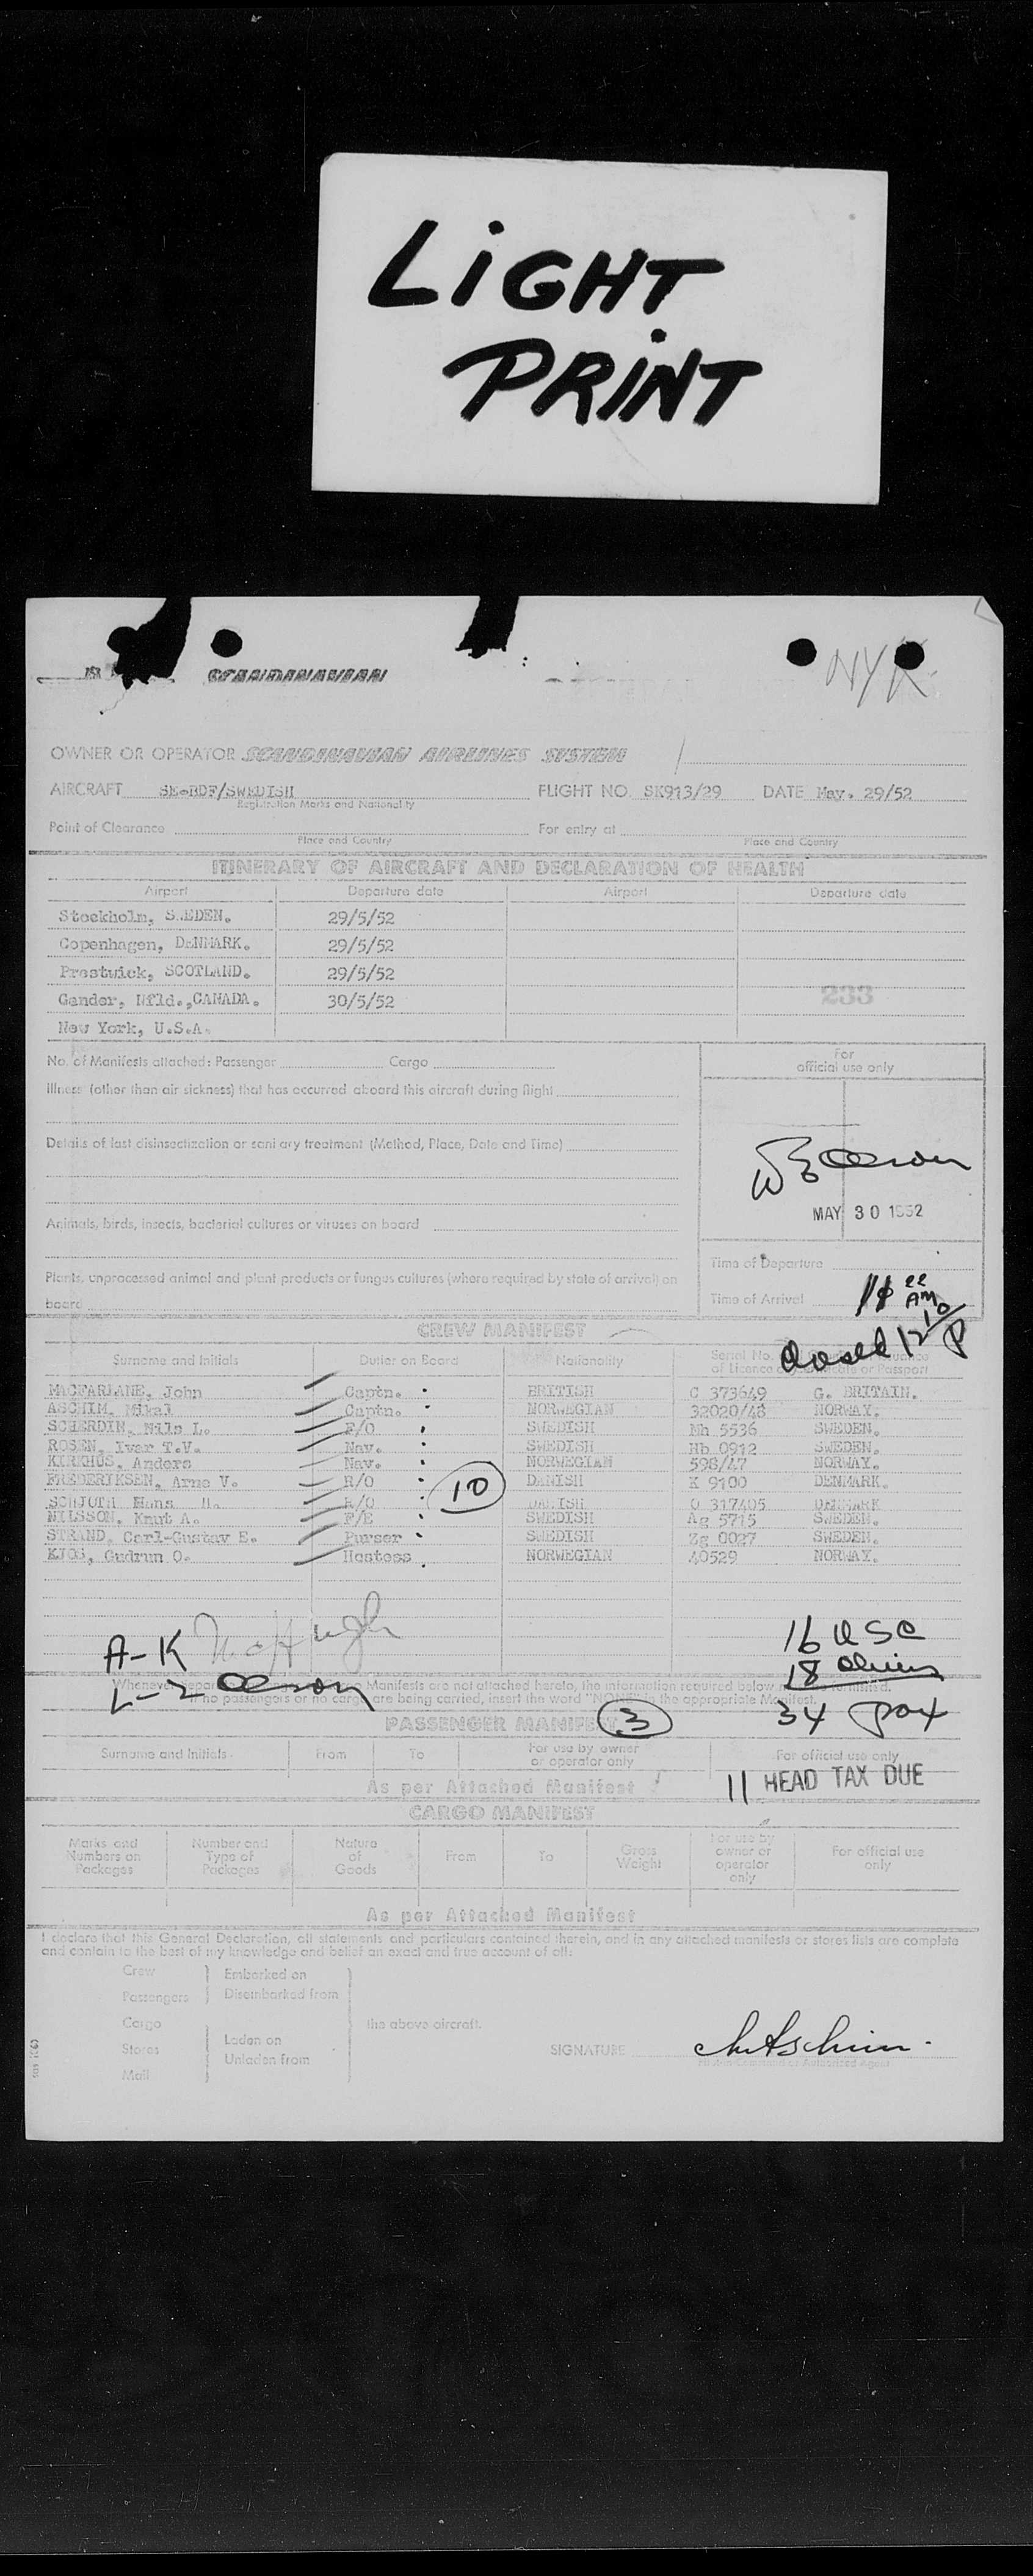 LiGHT
PRINT
SCANDINAVIAN
NYK
OWNER OR OPERATOR SCANDINAVIAN AIRLINES SYSTEM
AIRCRAFT SE-BDF/SWEDISH FLIGHT NO. SK913/29 DATE May. 29/52
Registration Marks and Nationality
Point of Clearance For entry at
Place and Country Place and Country
ITINERARY OF AIRCRAFT AND DECLARATION OF HEALTH
Airport Departure date Airport Departure date
Stockholm, SWEDEN. 29/5/52
Copenhagen, DENMARK. 29/5/52
Prestwick, SCOTLAND. 29/5/52
Gander, Nfld.,CANADA. 30/5/52 233
New York, U.S.A.
No. of Manifests attached: Passenger Cargo
For
official use only
Illness (other than air sickness) that has occurred aboard this aircraft during flight
Details of last disinsectization or sanitary treatment (Method, Place, Date and Time)
MAY 30 1952
Animals, birds, insects, bacterial cultures or viruses on board
Time of Departure
Plants, unprocessed animal and plant products or fungus cultures (where required by state of arrival) on
board
Time of Arrival 11 22 AM
closed 12 10/P
CREW MANIFEST
Surname and Initials Duties on Board Nationality Serial No. of Licence or Passport
MACFARLANE, John Captn. BRITISH C 373649 G. BRITAIN.
ASCHIM, Mikal Captn. NORWEGIAN 32020/48 NORWAY.
SCHERDIN, Nils L. F/O SWEDISH Nh 5536 SWEDEN.
ROSEN, Ivar T.V. Nav. SWEDISH Hb 0912 SWEDEN.
KIRKHUS, Anders Nav. NORWEGIAN 598/47 NORWAY.
FREDERIKSEN, Arne V. R/O DANISH K 9100 DENMARK.
10
SCHJOTH, Hans H. R/O DANISH O 317405 DENMARK
NILSSON, Knut A. F/E SWEDISH Ag 5715 SWEDEN.
STRAND, Carl-Gustav E. Purser SWEDISH Zg 0027 SWEDEN.
KJOS, Gudrun O. Hostess NORWEGIAN 40529 NORWAY.
A-K McHugh 16 USC
L-Z Olson 18 aliens
34 pax
Manifests are not attached hereto, the information required below
no passengers or no cargo are being carried, insert the word "NIL" in the appropriate Manifest.
PASSENGER MANIFEST 3
Surname and Initials From To For use by owner or operator only For official use only
As per Attached Manifest 11 HEAD TAX DUE
CARGO MANIFEST
Marks and Numbers on Packages Number and Type of Packages Nature of Goods From To Gross Weight For use by owner or operator only For official use only
As per Attached Manifest
I declare that this General Declaration, all statements and particulars contained therein, and in any attached manifests or stores lists are complete
and contain to the best of my knowledge and belief an exact and true account of all:
Crew Embarked on
Passengers Disembarked from
Cargo the above aircraft.
Stores Laden on
Unladen from
Mail
SIGNATURE MAschim.
Pilot-in-Command or Authorized Agent